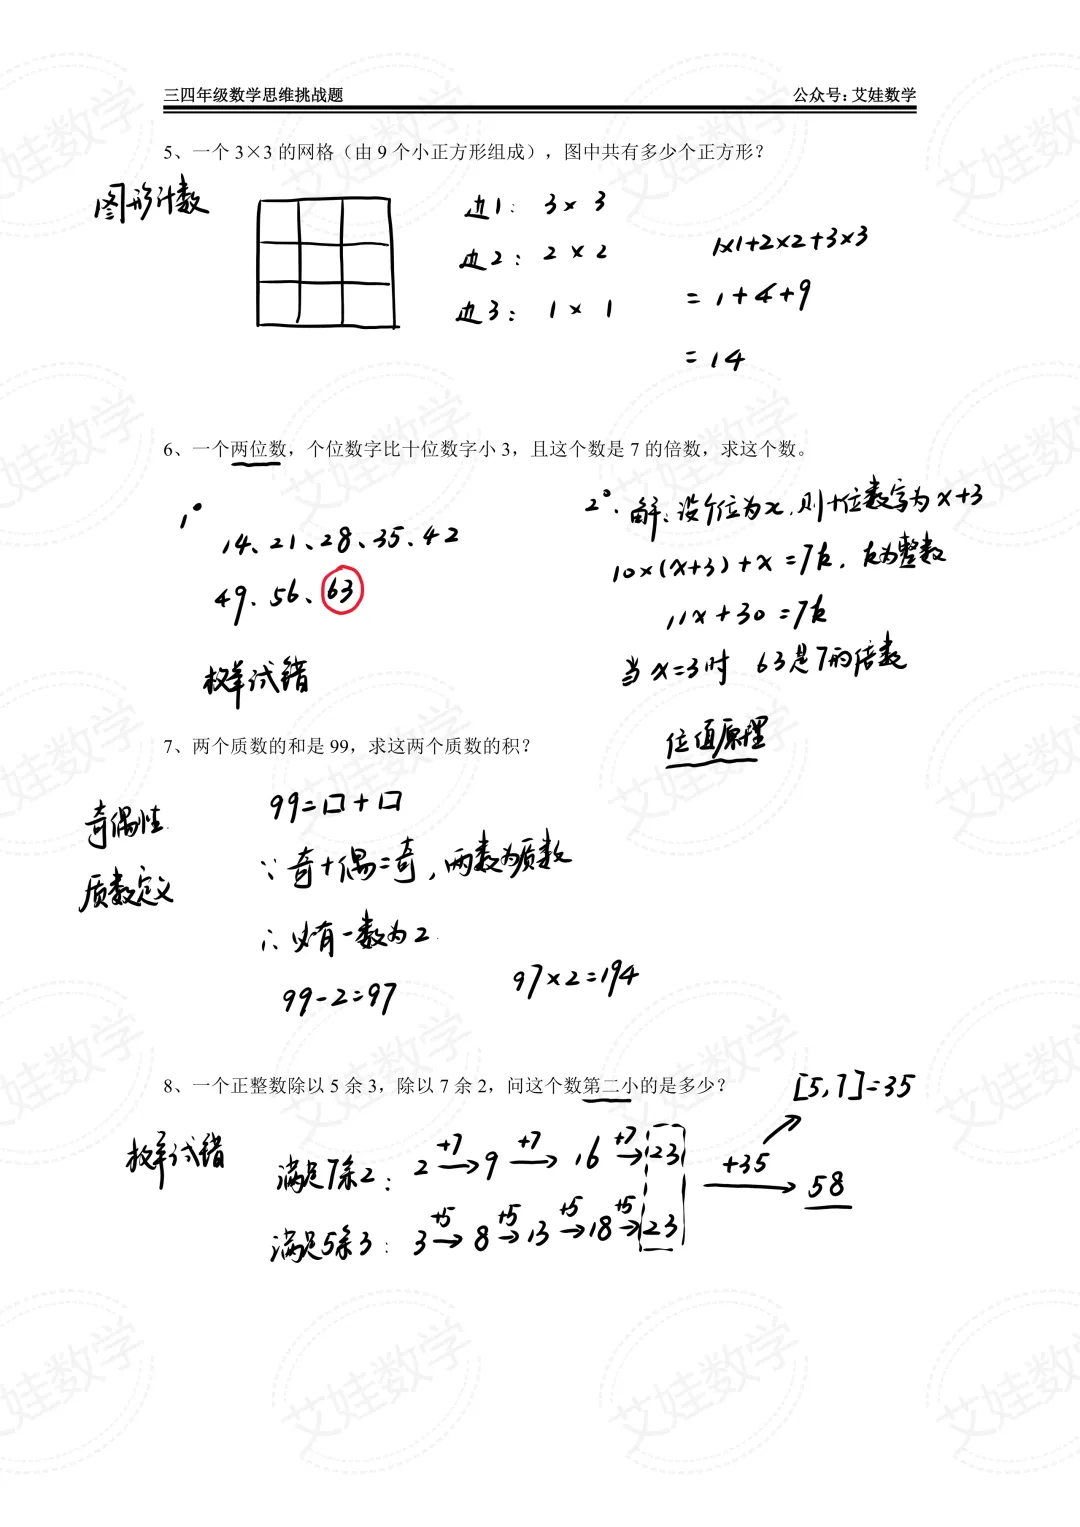 三四年级数学思维挑战题
公众号: 艾娃数学
5、一个 3×3 的网格（由 9 个小正方形组成），图中共有多少个正方形？
图形计数
边1: 3×3
边2: 2×2
边3: 1×1
1×1+2×2+3×3
=1+4+9
=14
6、一个两位数，个位数字比十位数字小 3，且这个数是 7 的倍数，求这个数。
1°
14、21、28、35、42
49、56、63
枚举试错
2°. 解: 设个位为x, 则十位数字为x+3
10×(x+3)+x=7k, k为整数
11x+30=7k
当x=3时 63是7的倍数
位值原理
7、两个质数的和是 99，求这两个质数的积？
奇偶性
质数定义
99=口+口
∵奇+偶=奇, 两数为质数
∴必有一数为2
99-2=97
97×2=194
8、一个正整数除以 5 余 3，除以 7 余 2，问这个数第二小的是多少？
[5,7]=35
枚举试错
满足7余2: 2 +7→ 9 +7→ 16 +7→ 23
满足5余3: 3 +5→ 8 +5→ 13 +5→ 18 +5→ 23
+35→ 58
艾娃数学